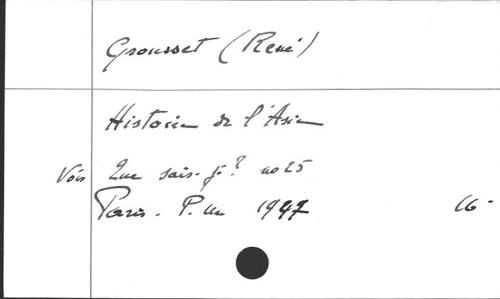 Grousset (René)
Histoire de l'Asie
Voir Que sais-je? no 25
Paris. P. Un 1947 16-